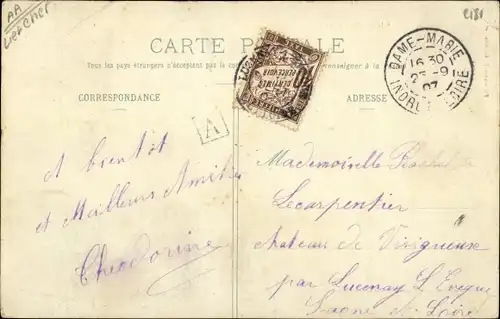 AA
2181
CARTE POSTALE
Tous les pays étrangers n'acceptent pas la
renseigner à la
CORRESPONDANCE
ADRESSE
10 CENTIMES A PERCEVOIR
DAME-MARIE
16 30
25 -9
07
INDRE ET LOIRE
A
A bientôt
et Meilleurs Amitiés
Théodorine
Mademoiselle
Lecarpentier
Chateau de Visigneux
par Lucenay L'Evêque
Saône et Loire